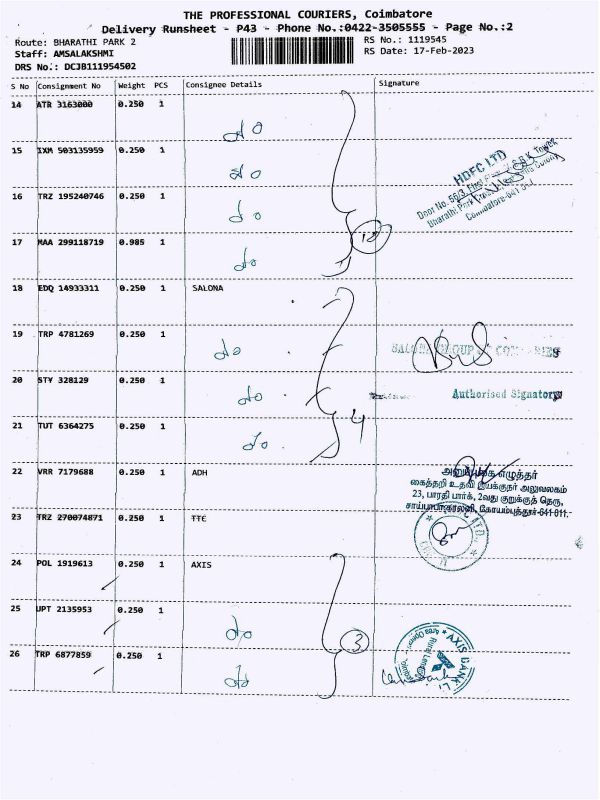 THE PROFESSIONAL COURIERS, Coimbatore
Delivery Runsheet - P43 - Phone No.:0422-3505555 - Page No.:2
Route: BHARATHI PARK 2
RS No.: 1119545
Staff: AMSALAKSHMI
RS Date: 17-Feb-2023
DRS No.: DCJB111954502
S No Consignment No Weight PCS Consignee Details Signature
14 ATR 3163000 0.250 1 do
15 IXM 503135959 0.250 1 do
HDFC LTD
16 TRZ 195240746 0.250 1 do
Coimbatore-641
17 MAA 299118719 0.985 1 do
18 EDQ 14933311 0.250 1 SALONA
19 TRP 4781269 0.250 1 do
20 STY 328129 0.250 1 do
Authorised Signatory
21 TUT 6364275 0.250 1 do
4
22 VRR 7179688 0.250 1 ADH
எழுத்தர்
கைத்தறி உதவி இயக்குநர் அலுவலகம்
23, பாரதி பார்க், 2வது குறுக்குத் தெரு,
கோயம்புத்தூர்-641 011.
23 TRZ 270074871 0.250 1 TTE
24 POL 1919613 0.250 1 AXIS
25 UPT 2135953 0.250 1 do
3
26 TRP 6877859 0.250 1 do
AXIS BANK